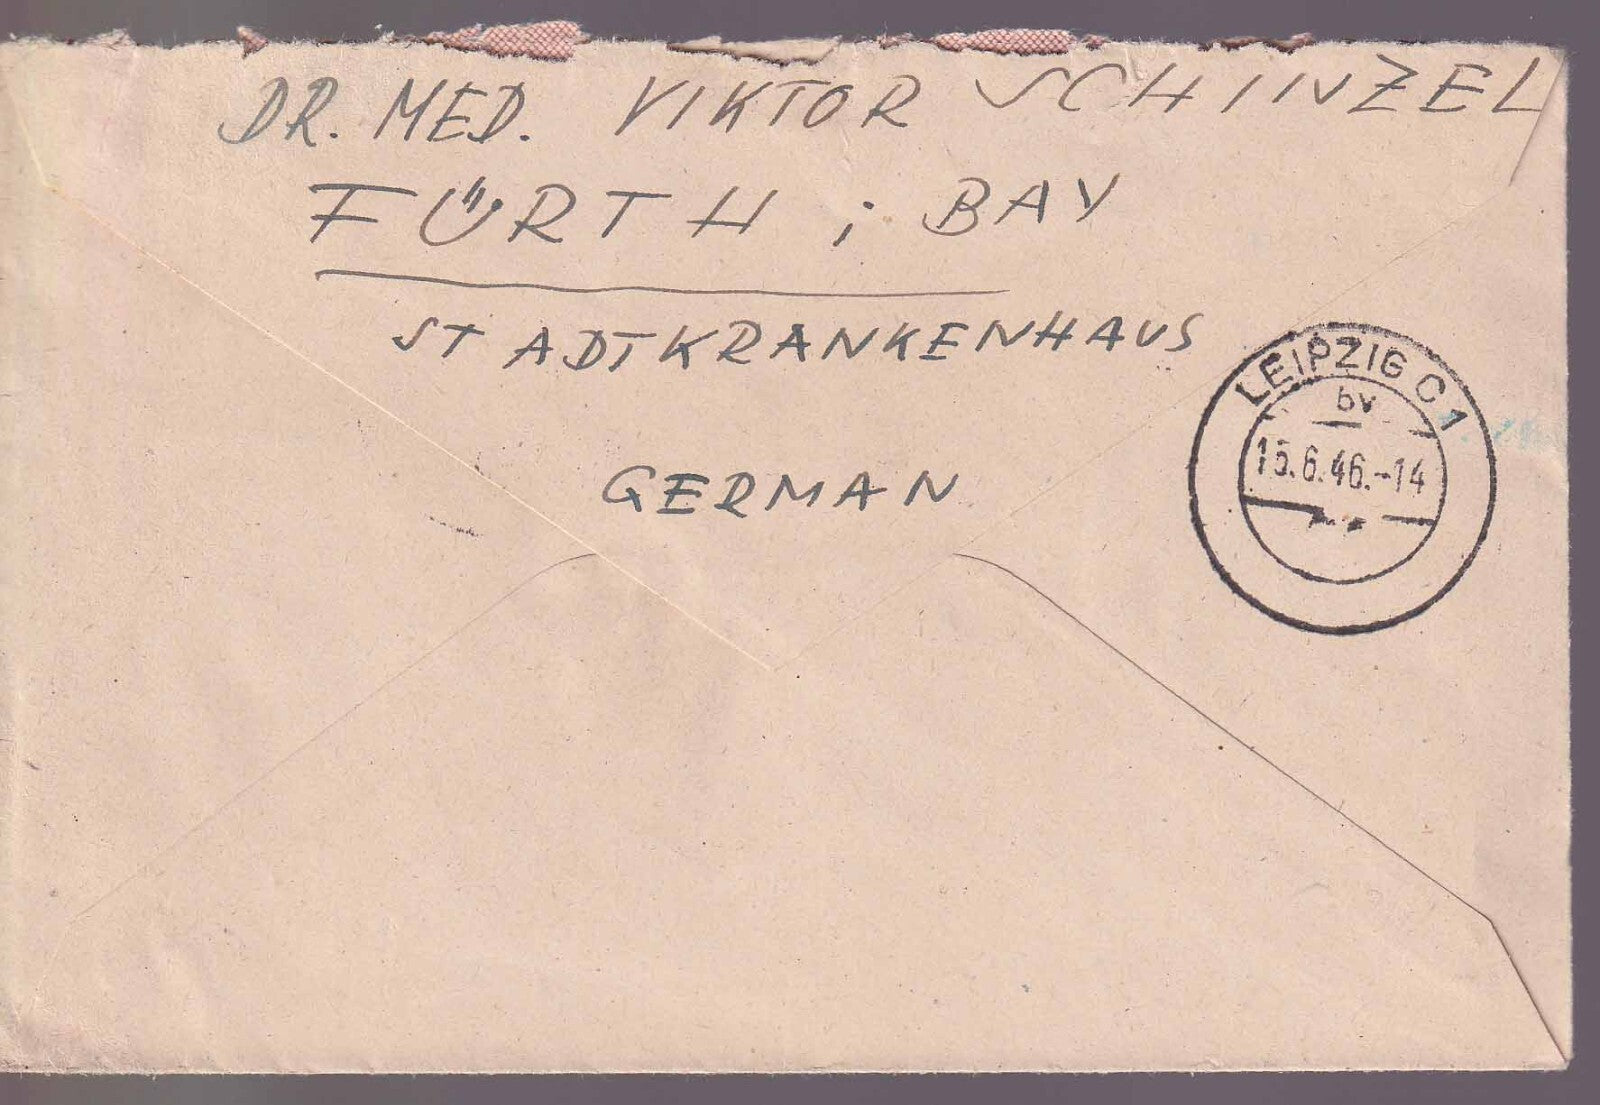 DR. MED. VIKTOR SCHINZEL
FÜRTH i BAY
STADTKRANKENHAUS
GERMAN
LEIPZIG C1
bv
15.6.46.-14